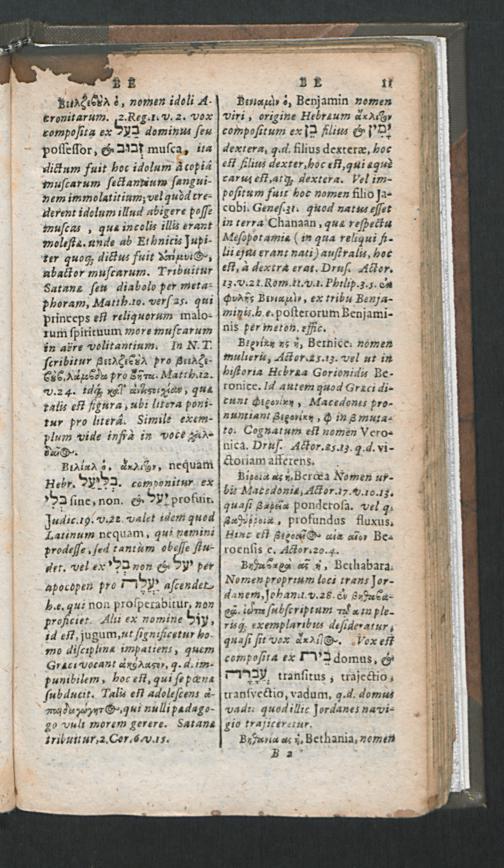 B E
Βεελζεβοὺλ ὁ, nomen idoli A-
cronitarum. 2.Reg.1.v.2. vox
composita ex בַּעַל dominus seu
possessor, & זְבוּב musca, ita
dictum fuit hoc idolum à copiâ
muscarum sectantium sangui-
nem immolatitium; vel quòd cre-
derent idolum illud abigere posse
muscas, quæ incolis illis erant
molestæ. unde ab Ethnicis Jupi-
ter quoq; dictus fuit
abactor muscarum. Tribuitur
Satanæ seu diabolo per meta-
phoram, Matth.10. vers 25. qui
princeps est reliquorum malo-
rum spirituum more muscarum
in aëre volitantium. In N.T.
scribitur βεελζεβοὺλ pro βεελζε-
βοὺβ, λάμβδα pro βῆτα. Matth.12.
v.24. idq; κατ' ἀντίστοιχον, quæ
talis est figura, ubi litera poni-
tur pro literâ. Simile exem-
plum vide infrà in voce

Βελίαλ ὁ, ἄκλιτον, nequam
Hebr. בְּלִיַּעַל. componitur ex
בְּלִי sine, non. & יָעַל profuit.
Judic.19.v.22. valet idem quod
Latinum nequam, qui nemini
prodesse, sed tantùm obesse stu-
det. vel ex בְּלִי non & יַעַל per
apocopen pro יַעֲלֶה ascendet,
h.e. qui non prosperabitur, non
proficiet. Alii ex nomine עוֹל,
id est, jugum, ut significetur ho-
mo disciplinæ impatiens, quem
Græci vocant ἀκόλαστον, q.d. im-
punibilem, hoc est, qui se pœnæ
subducit. Talis est adolescens ἀ-
παιδαγώγητος, qui nulli pædago-
go vult morem gerere. Satanæ
tribuitur, 2.Cor.6.v.15.
B E 11
Βενιαμὶν ὁ, Benjamin nomen
viri, origine Hebræum ἄκλιτον
compositum ex בֵּן filius & יָמִין
dextera, q.d. filius dexteræ, hoc
est filius dexter, hoc est, qui æquè
carus est, atq; dextera. Vel im-
positum fuit hoc nomen filio Ja-
cobi. Genes.31. quod natus esset
in terra Chanaan, quæ respectu
Mesopotamiæ (in qua reliqui fi-
lii ejus erant nati) australis, hoc
est, à dextrâ erat. Drus. Actor.
13.v.21. Rom.11.v.1. Philip.3.5. ἐκ
φυλῆς Βενιαμὶν, ex tribu Benja-
minis. h.e. posterorum Benjami-
nis per meton. effic.
Βερνίκη ης ἡ, Bernice. nomen
mulieris, Actor.25.13. vel ut in
historia Hebræa Gorionidis Be-
ronice. Id autem quod Græci di-
cunt φερονίκη, Macedones pro-
nuntiant βερονίκη, φ in β muta-
to. Cognatum est nomen Vero-
nica. Drus. Actor.25.13. q.d. vi-
ctoriam afferens.
Βέροια ας ἡ, Berœa Nomen ur-
bis Macedoniæ, Actor.17.v.10.13.
quasi βαρεῖα ponderosa. vel q.
βαθύῤῥοια, profundus fluxus.
Hinc est βεροιαῖος αία αῖον Be-
roensis c. Actor.20.4.
Βηθαβαρὰ ᾶς ἡ, Bethabara.
Nomen proprium loci trans Jor-
danem, Johan.1.v.28. ἐν βηθαβα-
ρᾷ. ἰῶτα subscriptum in ple-
risq; exemplaribus desideratur,
quasi sit vox ἄκλιτος. Vox est
composita ex בֵּית domus, &
עֲבָרָה transitus, trajectio,
transvectio, vadum, q.d. domus
vadi: quod illic Jordanes navi-
gio trajiceretur.
Βηθανία ας ἡ, Bethania, nomen
B 2